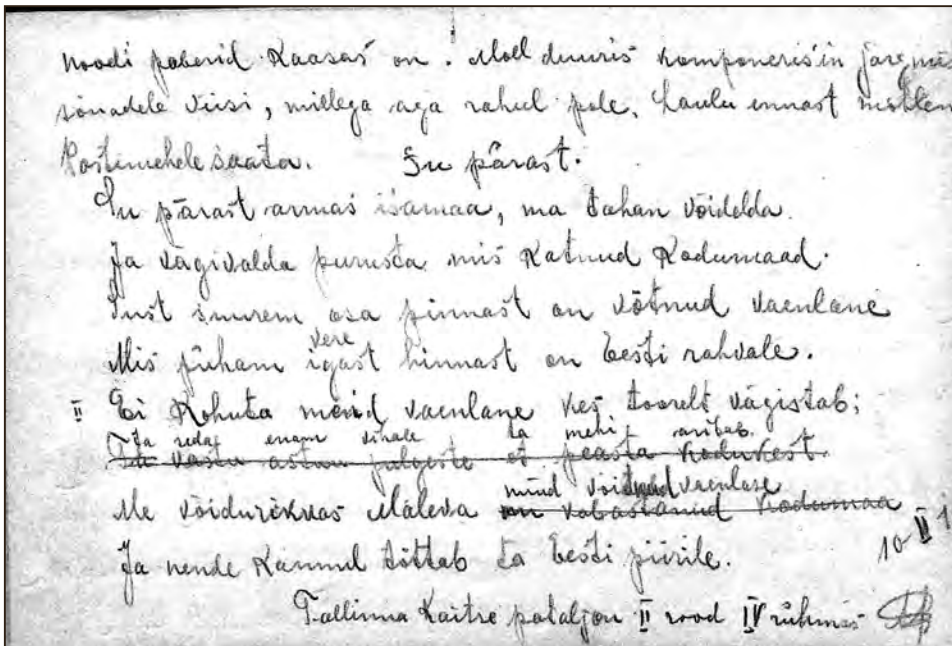 noodi paberid kaasas on. Moll duuris komponerisin järgmis
sõnadele viisi, millega aga rahul pole. Laulu ennast mõtlen
Postimehele saata. Su pärast.
Su pärast armas isamaa, ma tahan võidelda.
Ja vägivalda purusta mis katnud kodumaad.
Sust suurem osa pinnast on võtnud vaenlane
vere
Mis püham igast hinnast on Eesti rahvale.
II Ei kohuta meid vaenlane kes toorelt vägistab;
Ja seda enam vihale ta mehi äritab.
vastu astuu julgeste et peasta kodukest
nüüd võitnud vaenlase
Me võidurikkas Maleva on vabastanud kodumaa
Ja nende kannul tõttab ta Eesti piirile.
10 II 1
Tallinna Kaitse pataljon II rood IV rühmas